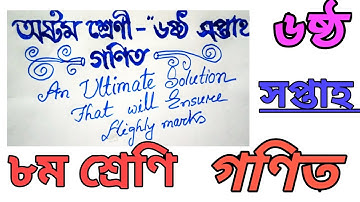 অষ্টম শ্রেণী - "৬ষ্ঠ সপ্তাহ
গণিত
An Ultimate Solution
That will Ensure
Highly marks
৬ষ্ঠ
সপ্তাহ
৮ম শ্রেণি গণিত